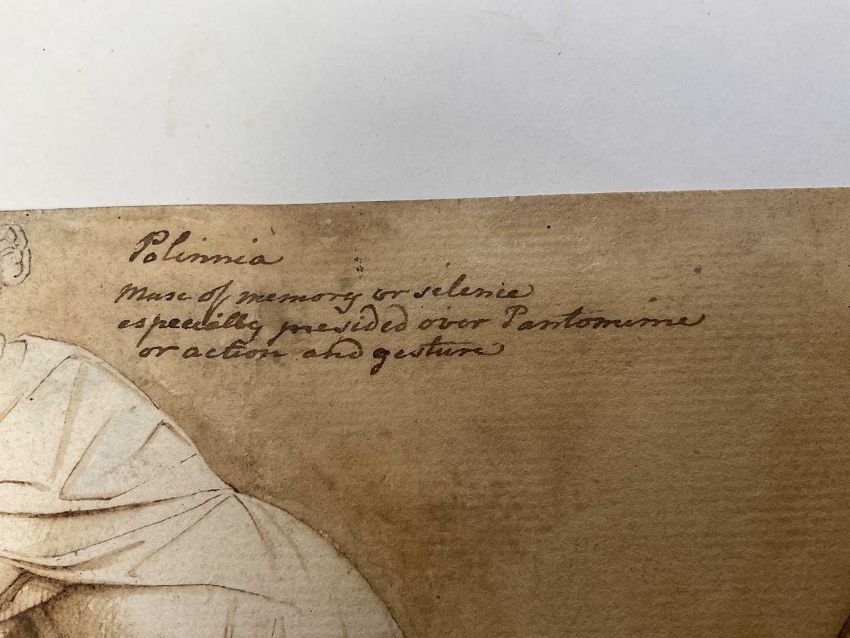 Polinnia
Muse of memory or silence
especially presided over Pantomime
or action and gesture